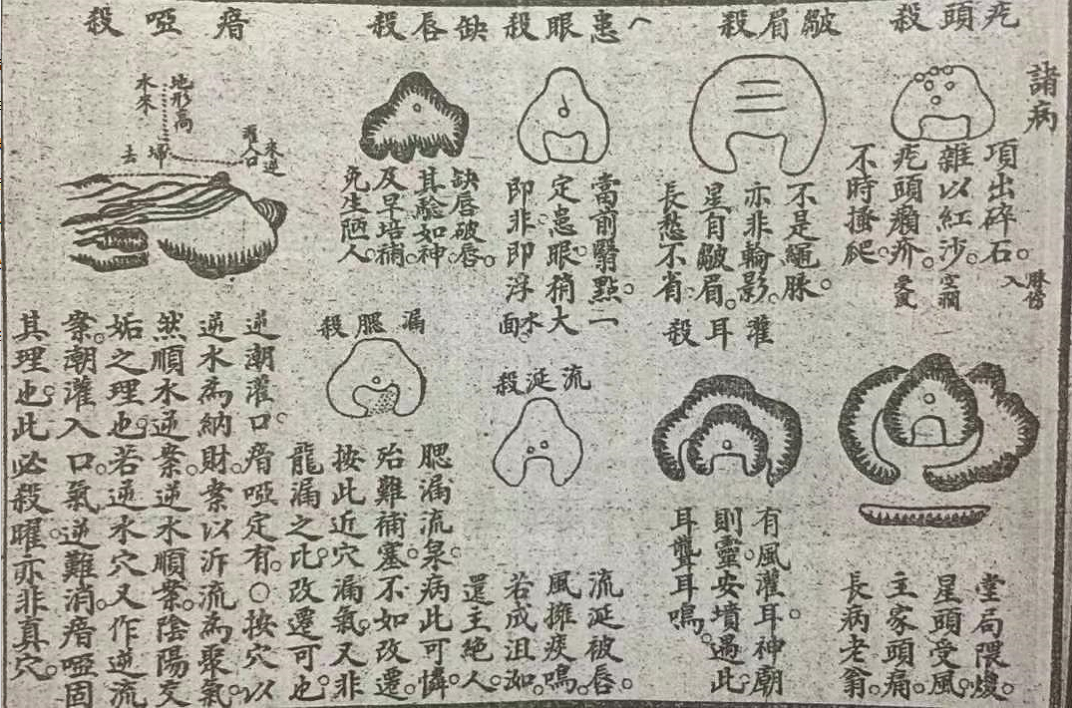 諸病
疙頭殺
項出碎石。
雜以紅沙。
疙頭癩疥。
不時搔爬。
皺眉殺
不是繩脉。
亦非輪影。
星自皺眉。
長愁不省。
患眼殺
當前翳點。
定患眼
即非即浮
稍大
水面
缺唇殺
缺唇破唇。
其驗如神。
及早培補。
免生陋人。
瘖啞殺
地形高
水來
去
堂局隈煖。
星頭受風。
主家頭痛。
長病老翁。
灌耳殺
有風灌耳。神廟
則靈。安墳遇此。
耳聾耳鳴。
流涎殺
流涎被唇。
風擁痰鳴。
若成沮洳。
還主絕人。
漏腮殺
腮漏流泉。病此可憐。
殆難補塞。不如改遷。
按此近穴漏氣。又非
龍漏之比。改遷可也。
逆潮灌口。瘖啞定有。○按穴以
逆水為納財。案以泝流為聚氣。
然順水逆案。逆水順案。陰陽交
姤之理也。若逆水穴又作逆流
案。潮灌入口。氣逆難消。瘖啞固
其理也。此必殺曜。亦非真穴。